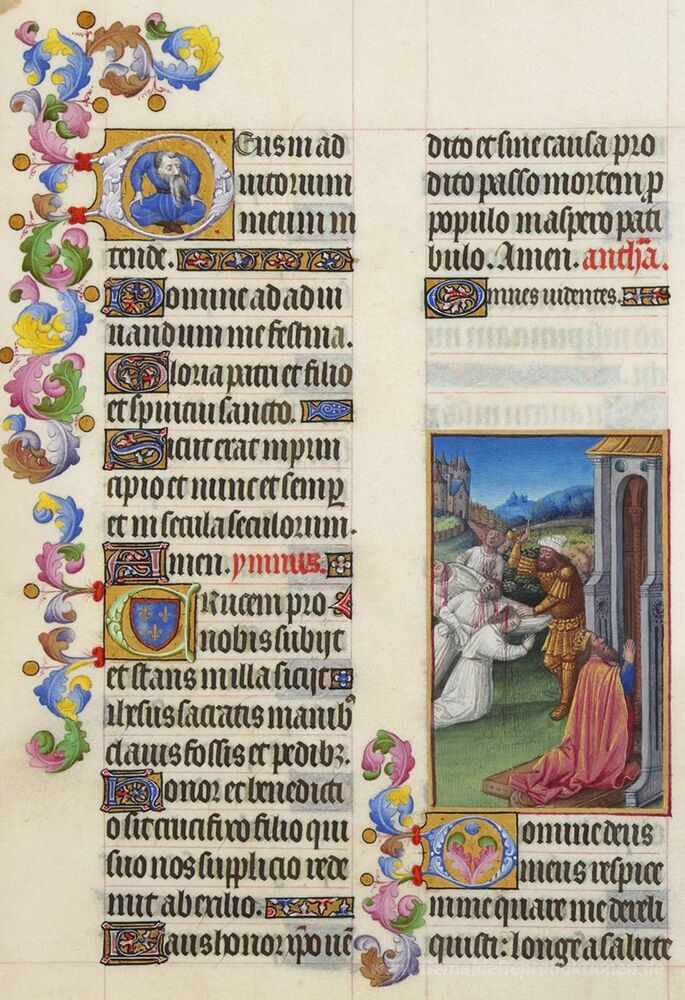 Deus in ad
iutorium
meum in
tende.
Domine ad adiu
uandum me festina.
Gloria patri et filio
et spiritui sancto.
Sicut erat in prin
cipio et nunc et semp
et in secula seculorum.
Amen. ymnus.
Crucem pro
nobis subijt
et stans in illa sicijt
ihesus sacratis manib9
clauis fossis et pedibz.
Honor et benedicti
o sit crucifixo filio qui
suo nos supplicio rede
mit ab exilio.
Laus honor xpo uē
dito et sine causa pro
dito passo mortem p
populo in aspero pati
bulo. Amen. antha.
Omnes uidentes.
Domine deus
meus respice
in me quare me dereli
quisti: longe a salute